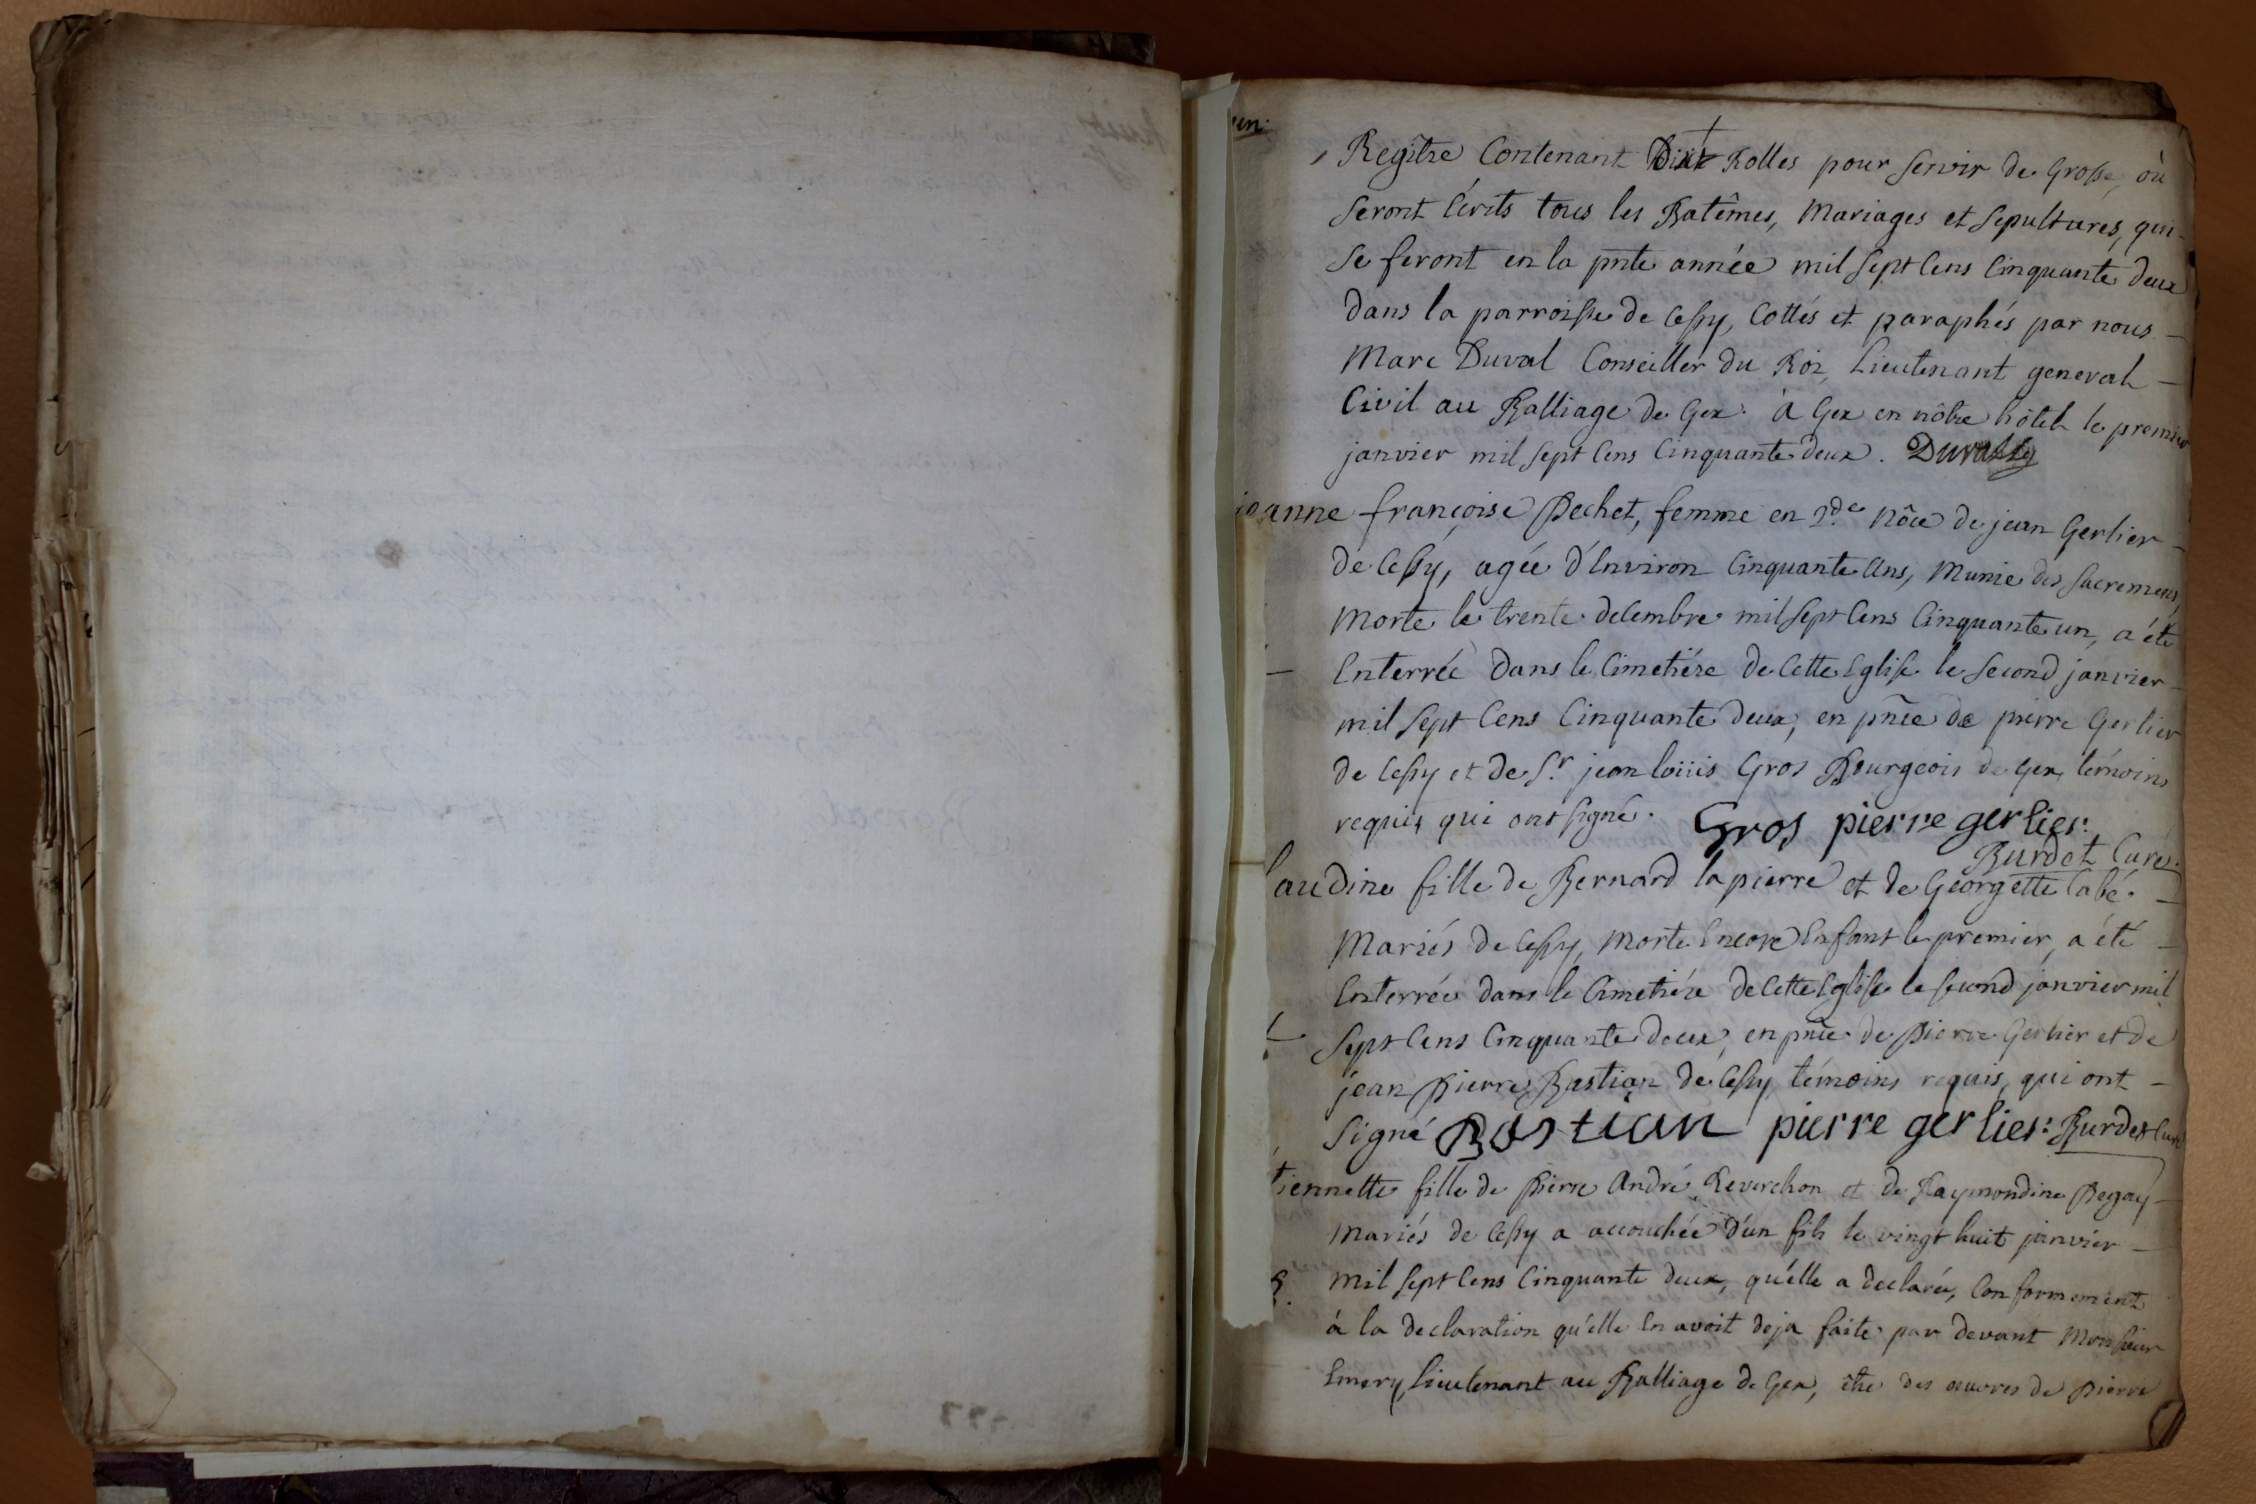 un.
Regitre Contenant Dix Rolles pour servir de Grosse, où
seront écrits tous les Batêmes, Mariages et sepultures, qui
se feront en la pnte année mil sept Cens Cinquante deux
dans la parroisse de Cessy, Cottés et paraphés par nous
Marc Duval Conseiller du Roi, Lieutenant general
Civil au Balliage de Gex. à Gex en nôtre hôtel le premier
janvier mil sept Cens Cinquante deux. Duval
jeanne françoise Bechet, femme en 2de Nôce de jean Gerlier
de Cessy, agée d'Environ Cinquante Ans, Munie des sacremens,
Morte le trente decembre mil sept Cens Cinquante un, a été
Enterrée dans le Cimetiére de Cette Eglise le second janvier
mil sept Cens Cinquante deux, en pñce de pierre Gerlier
de Cessy et de Sr. jean loüis Gros Bourgeois de Gex, témoins
requis qui ont signé. Gros pierre gerlier.
Burdet Curé.
laudine fille de Bernard la pierre et de Georgette Cabé.
Mariés de Cessy, Morte Encore Enfant le premier, a été
Enterrée dans le Cimetiére de Cette Eglise le second janvier mil
sept Cens Cinquante deux, en pñce de Pierre Gerlier et de
jean Pierre Bastian de Cessy témoins requis, qui ont
signé Bastian pierre gerlier: Burdet Curé
tiennette fille de Pierre André Reverchon et de Raymondine Begay
Mariés de Cessy a accouchée d'un fils le vingt huit janvier
mil sept Cens Cinquante deux, qu'elle a declaré, Conformement
à la declaration qu'elle En avoit deja faite par devant Monsieur
Emery, Lieutenant au Balliage de Gex, être des œuvres de Pierre